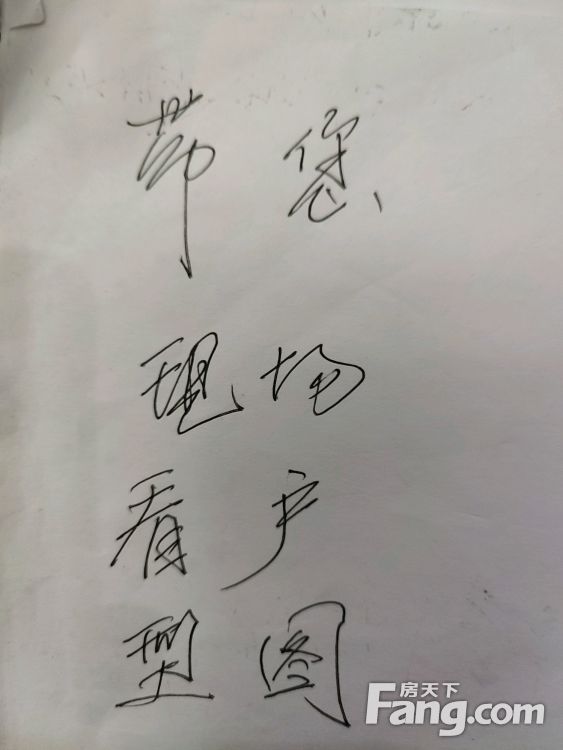 带您
现场
看户
型图
房天下
Fang.com